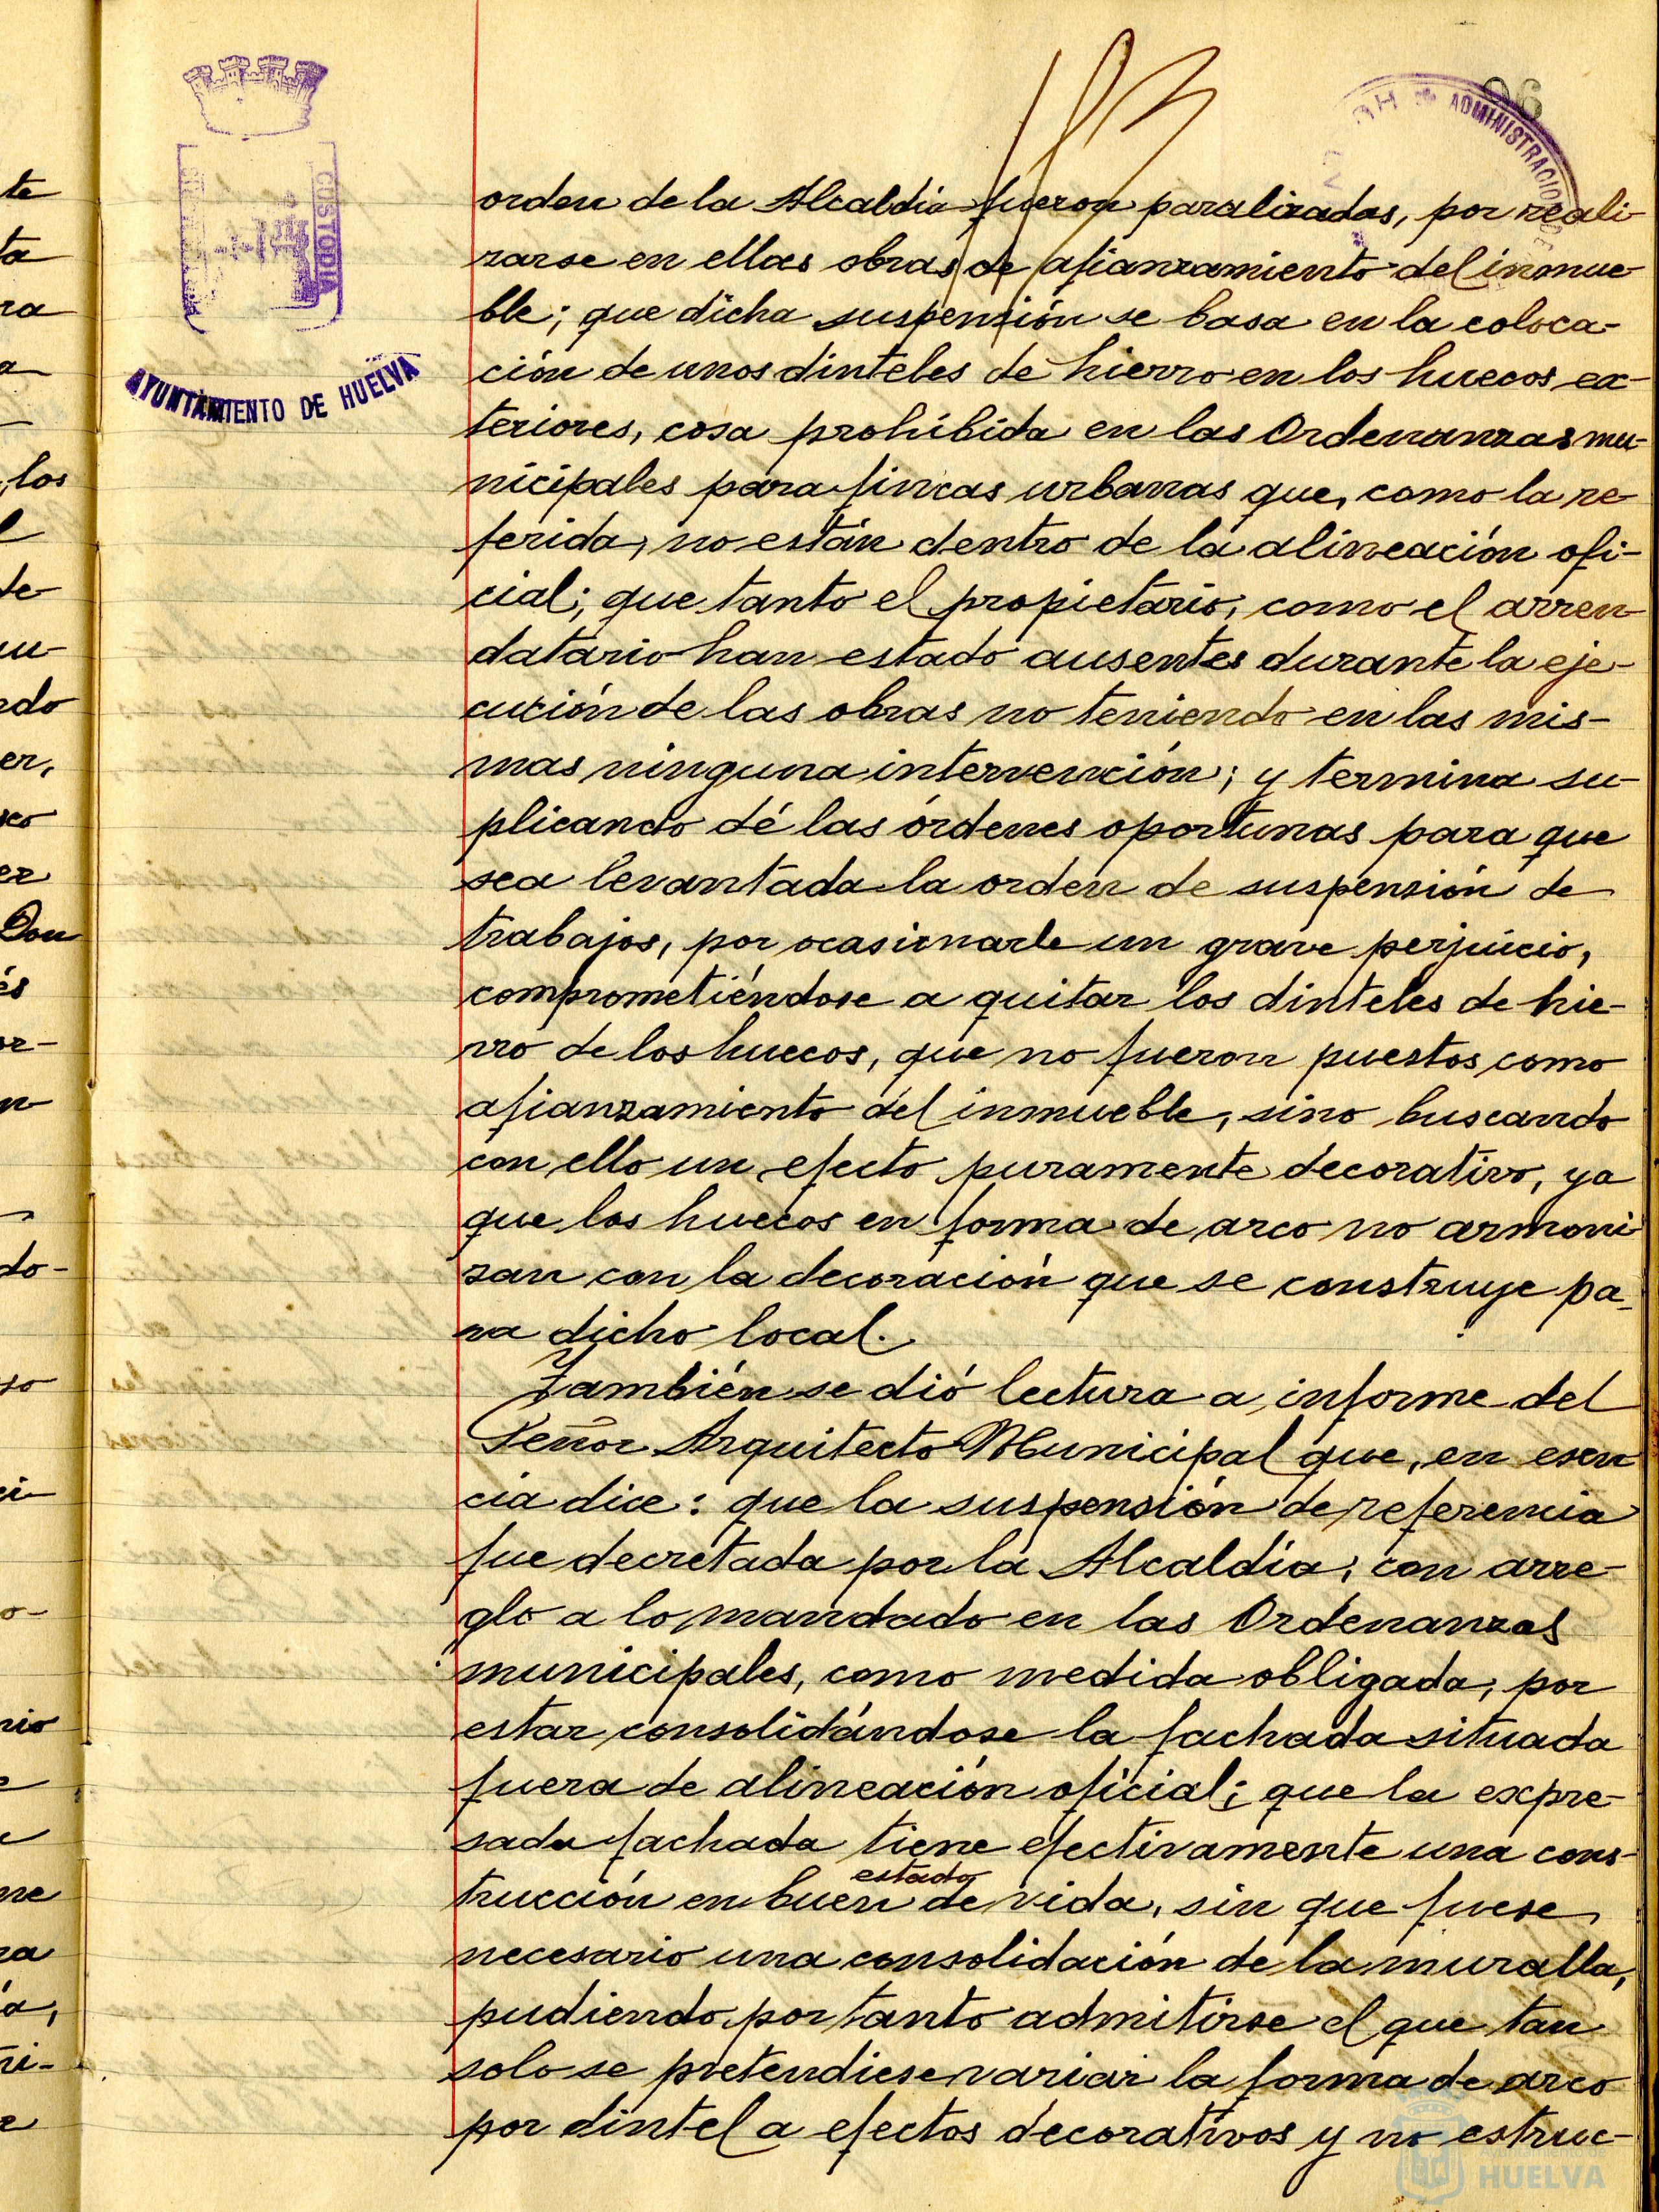 96
ADMINISTRACION DE
CUSTODIA
AYUNTAMIENTO DE HUELVA
orden de la Alcaldia fueron paralizadas, por reali-
zarse en ellas obras de afianzamiento del inmue-
ble; que dicha suspensión se basa en la coloca-
ción de unos dinteles de hierro en los huecos ex-
teriores, cosa prohibida en las Ordenanzas mu-
nicipales para fincas urbanas que, como la re-
ferida, no están dentro de la alineación ofi-
cial; que tanto el propietario, como el arren
datario han estado ausentes durante la eje-
cución de las obras no teniendo en las mis-
mas ninguna intervención; y termina su-
plicando dé las órdenes oportunas para que
sea levantada la orden de suspensión de
trabajos, por ocasionarle un grave perjuicio,
comprometiéndose a quitar los dinteles de hie-
rro de los huecos, que no fueron puestos como
afianzamiento del inmueble, sino buscando
con ello un efecto puramente decorativo, ya
que los huecos en forma de arco no armoni
zan con la decoración que se construye pa-
ra dicho local.
También se dió lectura a informe del
Señor Arquitecto Municipal que, en esen
cia dice: que la suspensión de referencia
fue decretada por la Alcaldía, con arre-
glo a lo mandado en las Ordenanzas
municipales, como medida obligada, por
estar consolidándose la fachada situada
fuera de alineación oficial; que la expre-
sada fachada tiene efectivamente una cons-
trucción en buen estado de vida, sin que fuese
necesario una consolidación de la muralla,
pudiendo por tanto admitirse el que tan
solo se pretendiese variar la forma de arco
por dintel a efectos decorativos y no estruc-
HUELVA